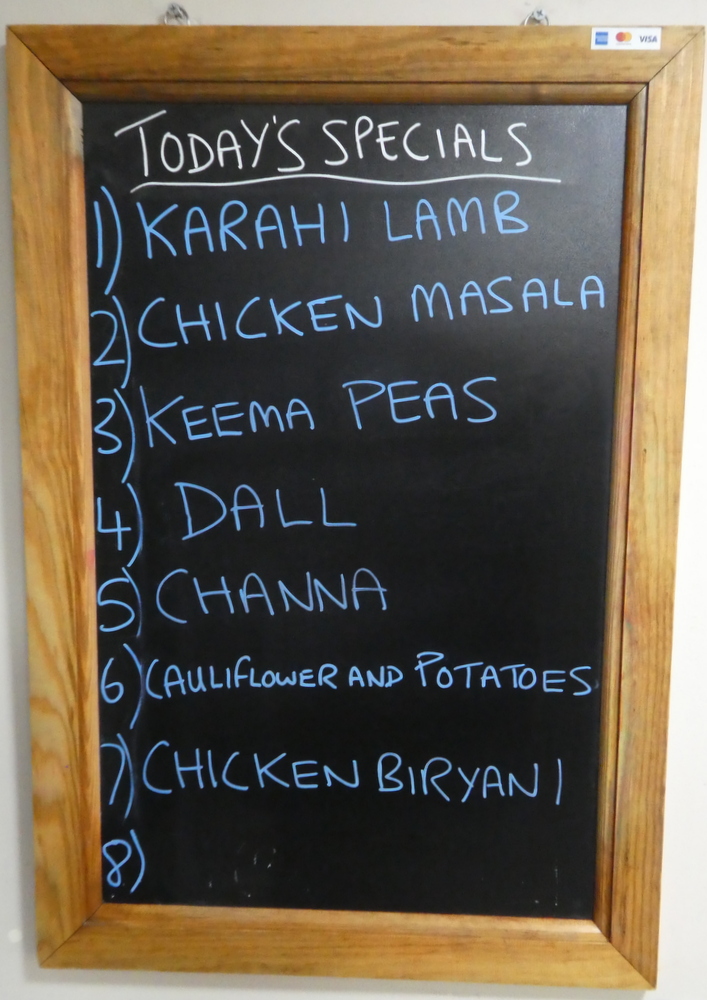 VISA
TODAY'S SPECIALS
1) KARAHI LAMB
2) CHICKEN MASALA
3) KEEMA PEAS
4) DALL
5) CHANNA
6) CAULIFLOWER AND POTATOES
7) CHICKEN BIRYANI
8)